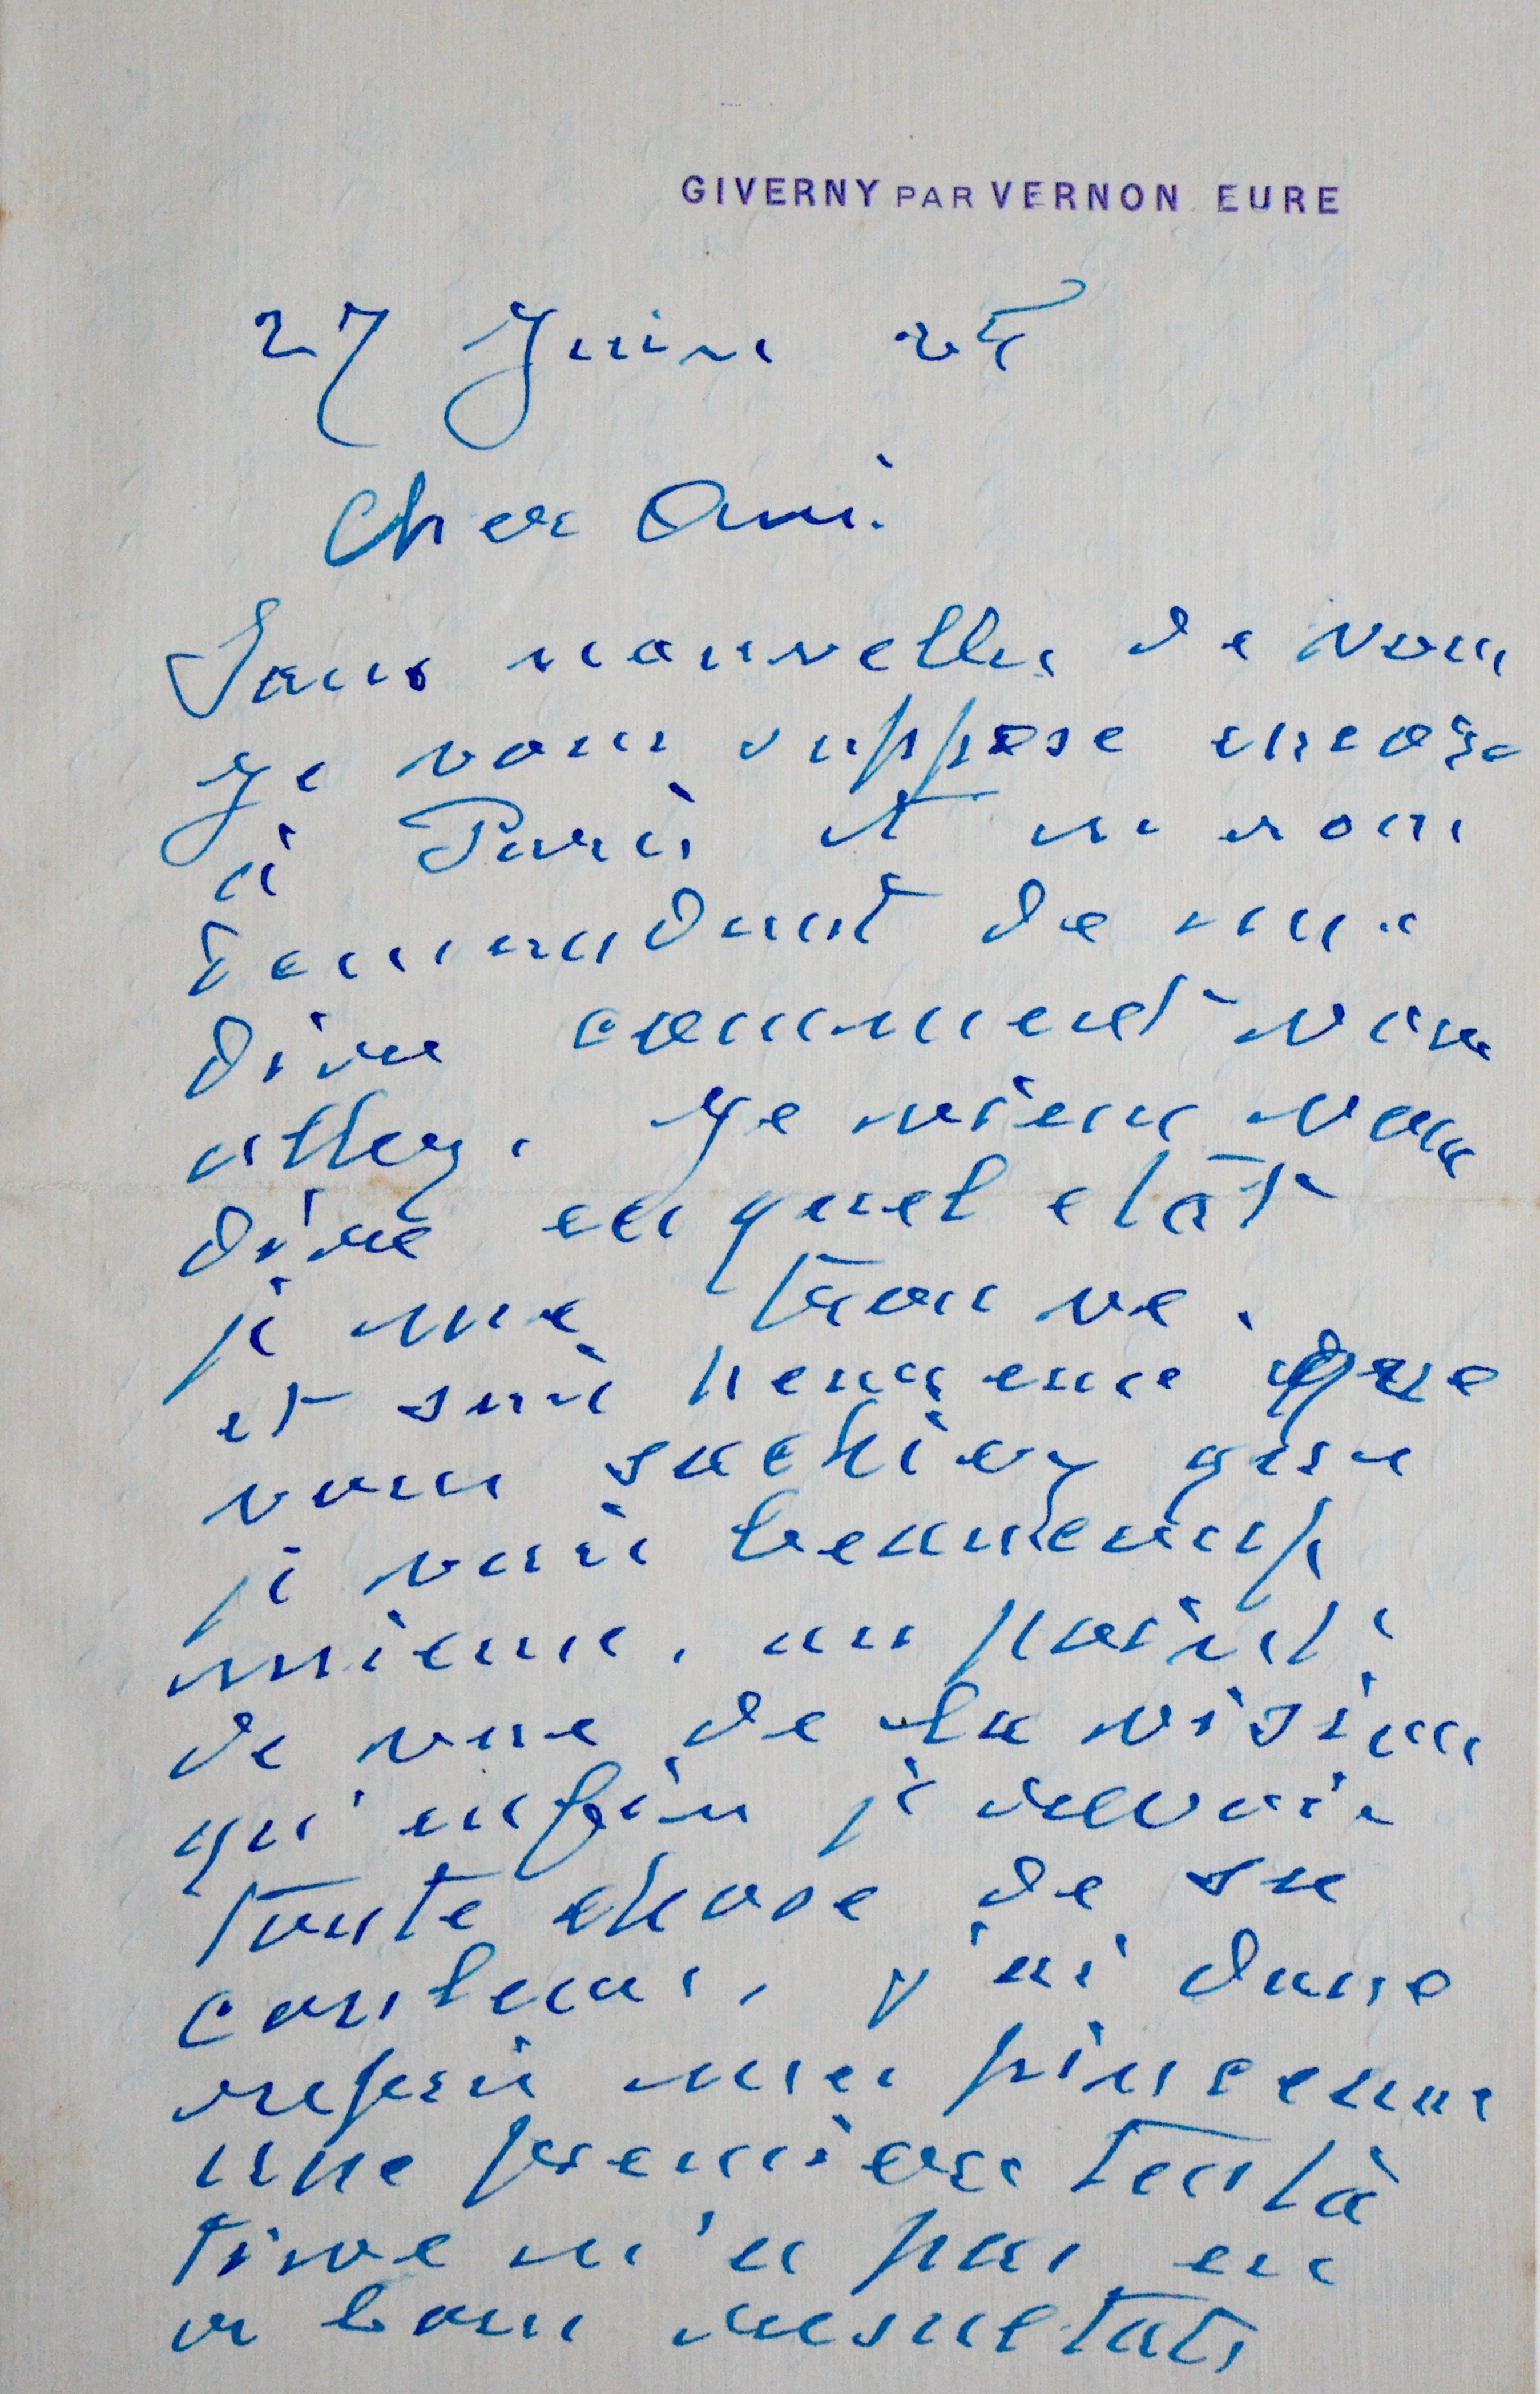 GIVERNY PAR VERNON EURE
27 Juin 25
Cher Ami.
Sans nouvelles de vous
je vous suppose encore
à Paris et en vous
demandant de me
dire comment vous
allez. Je viens vous
dire en quel etat
je me trouve.
et suis heureux que
vous sachiez que
je vais beaucoup
mieux. au point
de vue de la vision
qu'enfin je revois
toute chose de sa
couleur, j'ai donc
repris mes pinceaux
une premiere tenta
tive n'a pas eu
de bons resultats